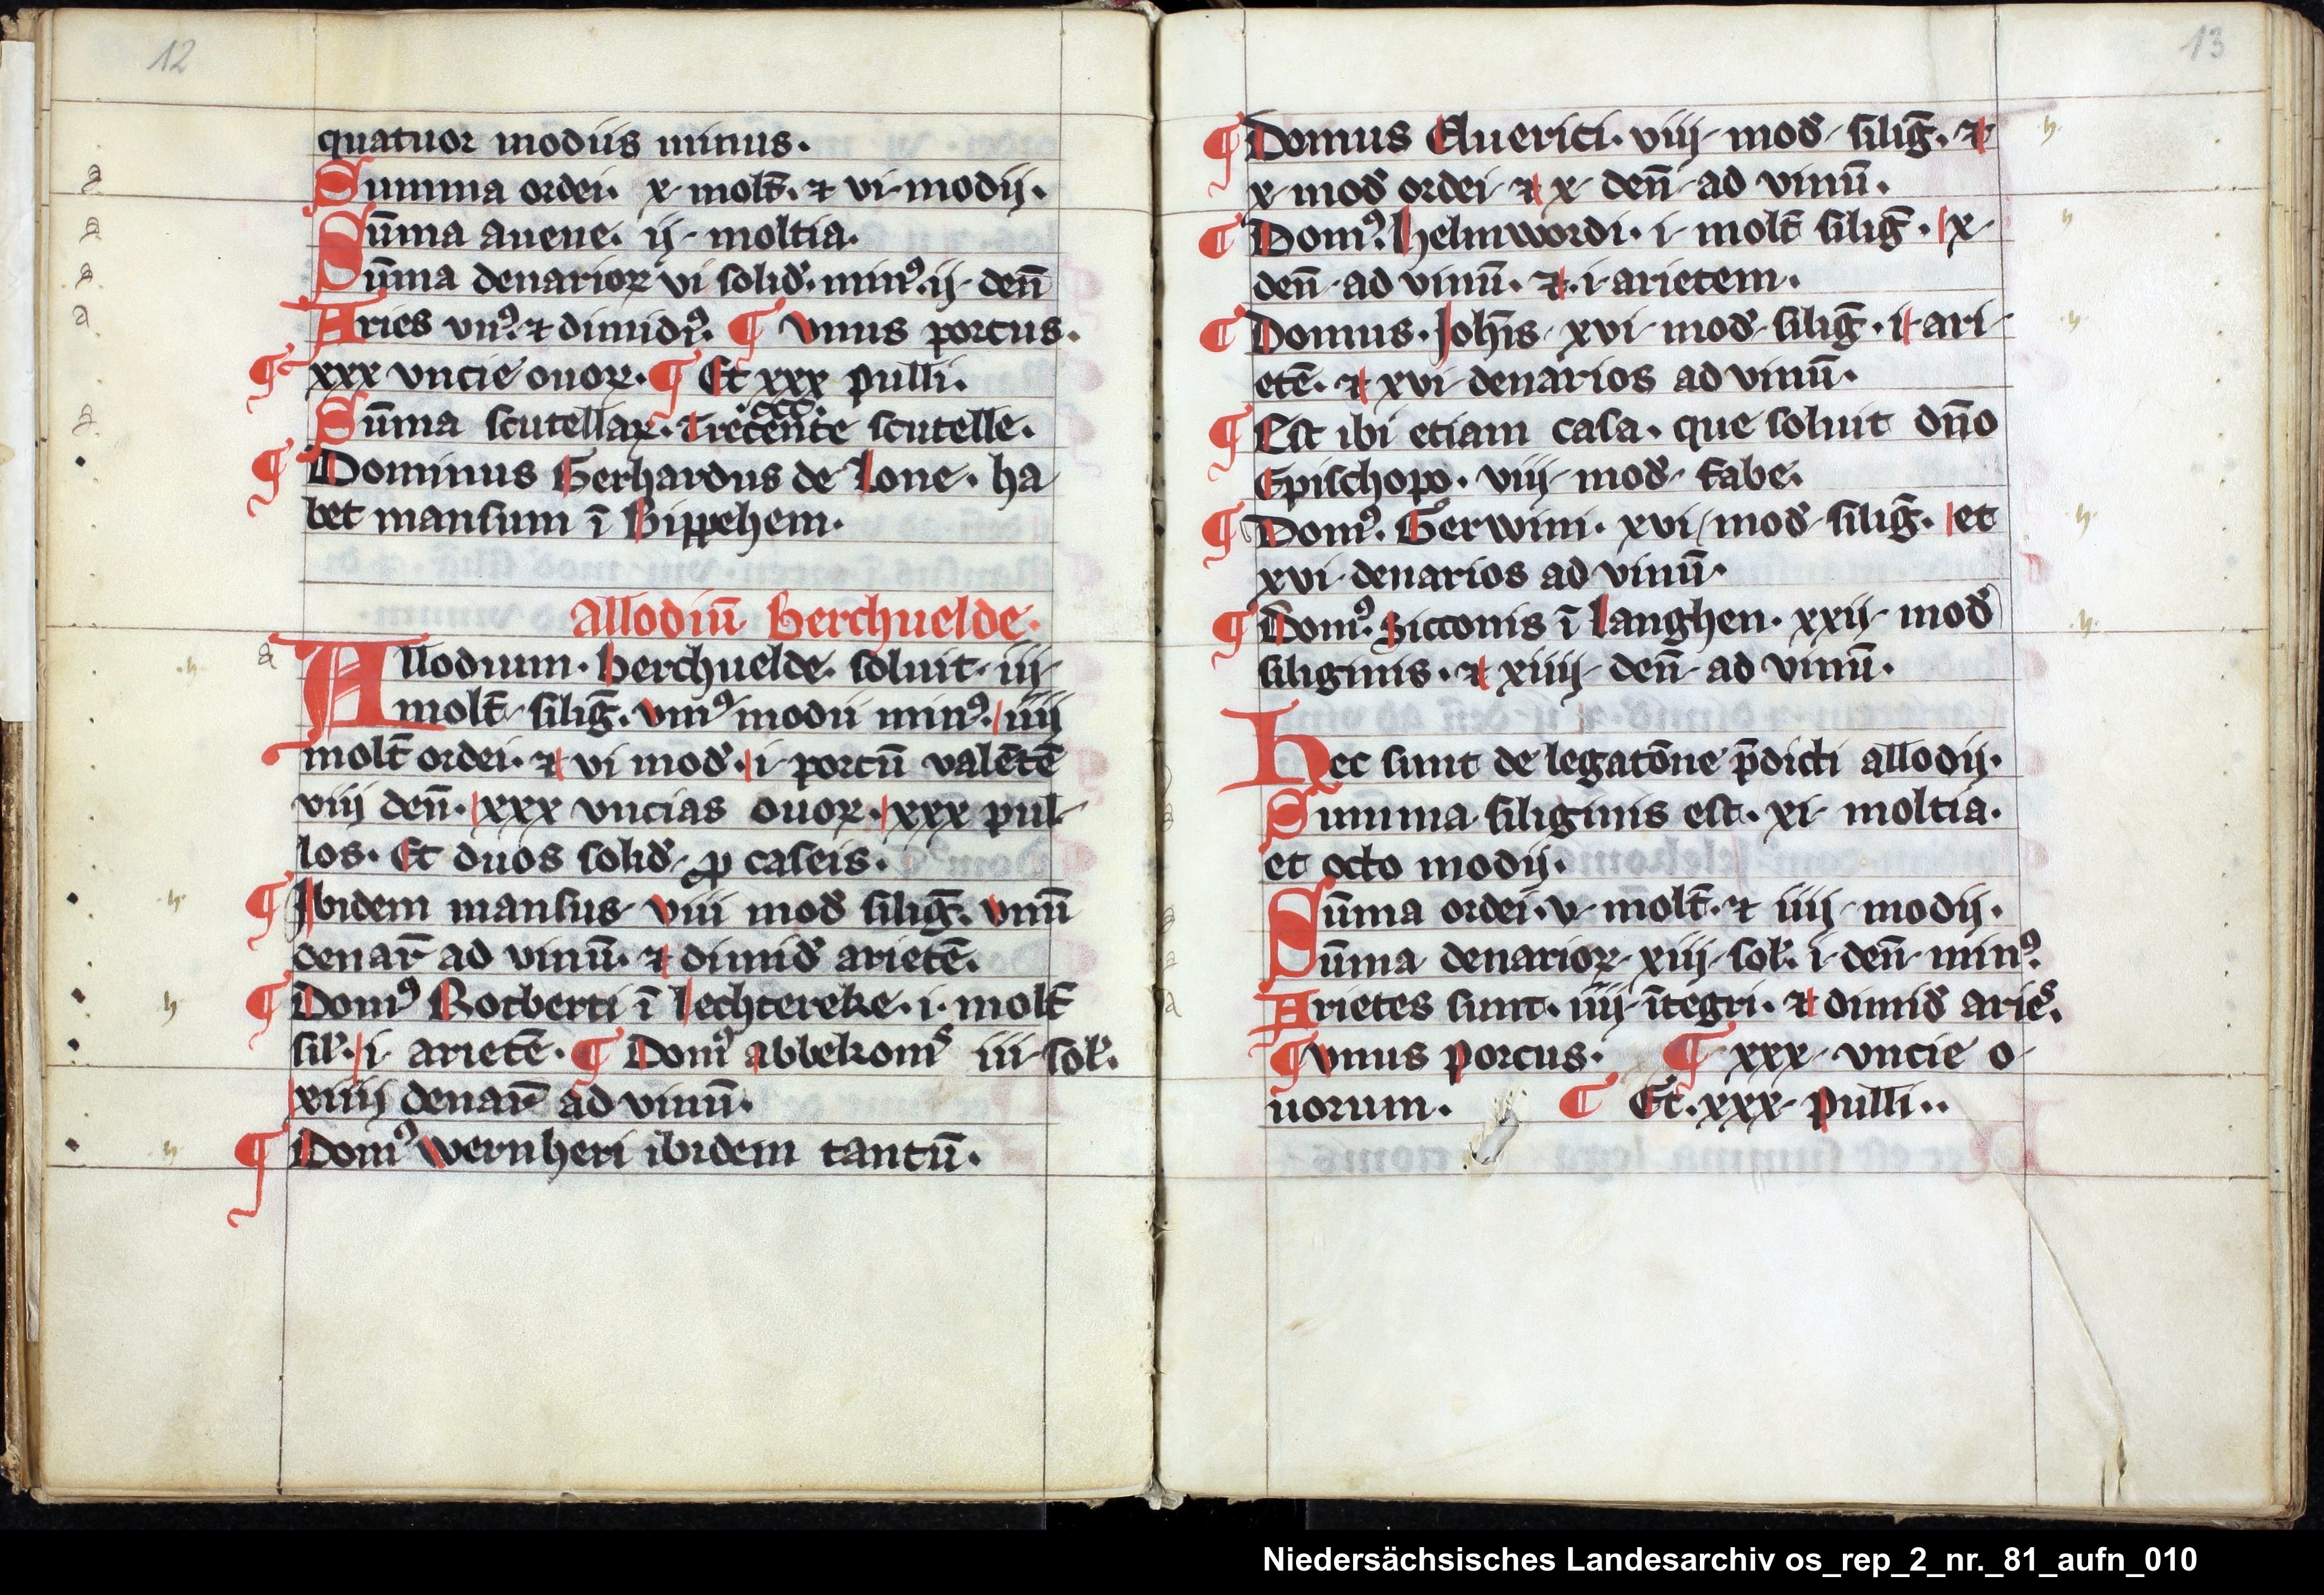 12
quatuor modiis minus.
Summa ordei. x. molt̄. ⁊ vi. modij.
Sūma auene. ij. moltia.
Sūma denarioꝝ vi solid̉. minꝰ. ij. den̄
Aries vnꝰ. ⁊ dimidiꝰ. ¶ Vnus porcus.
¶ xxx vncie ouoꝝ. ¶ Et xxx pulli.
.ccc.
Sūma scutellaꝝ. Trecente scutelle.
¶ Dominus Gerhardus de Lone. ha
bet mansum ī Bippehem.
Allodiū Berchuelde.
a
Allodium. Berchuelde. soluit. iij.
molt̄. siliḡ. vniꝰ modii minꝰ. iiij
molt̄ ordei. ⁊ vi mod̉. i. porcū valētē
viij den̄. xxx vncias ouoꝝ. xxx pul
los. Et duos solid̉. ꝓ caseis.
¶ Ibidem mansus viii mod̉ siliḡ. vnū
denar̄ ad vinū. ⁊ dimid̉ arietē.
¶ Domꝰ Rotberti ī Lechtereke. i. molt̄
sil̉. i. arietē. ¶ Domꝰ abbekonis iii. sol̉.
xiiij denar̄ ad vinū.
¶ Domꝰ Wernheri ibidem tantū.
13
¶ Domus Auerici. viij. mod̉. siliḡ. ⁊
x. mod̉ ordei. ⁊ x. den̄. ad vinū.
¶ Domꝰ. Helmwordi. i. molt̄ siliḡ. x.
den̄. ad vinū. ⁊. i. arietem.
¶ Domus. Joh̄is. xvi. mod̉. siliḡ. i. ari
etē. ⁊ xvi. denarios ad vinū.
¶ Est ibi etiam casa. que soluit dn̄o
Epischopo. viij. mod̉. fabe.
¶ Domꝰ. Gerwini. xvi. mod̉. siliḡ. et
xvi. denarios ad vinū.
¶ Domꝰ. Sicconis ī Langhen. xxij. mod̉
siliginis. ⁊ xiiij. den̄. ad vinū.
Hec sunt de legatōne p̄dicti allodij.
Summa siliginis est. xi. moltia.
et octo modij.
Sūma ordei. v. molt̄. ⁊ iiij. modij.
Sūma denarioꝝ. xiij. sol̉. i. den̄. minꝰ.
Arietes sunt. iiij. ītegri. ⁊ dimid̉ aries.
¶ Vnus porcus. ¶ xxx. vncie o
uorum. ¶ Et. xxx. pulli..
Niedersächsisches Landesarchiv os_rep_2_nr._81_aufn_010